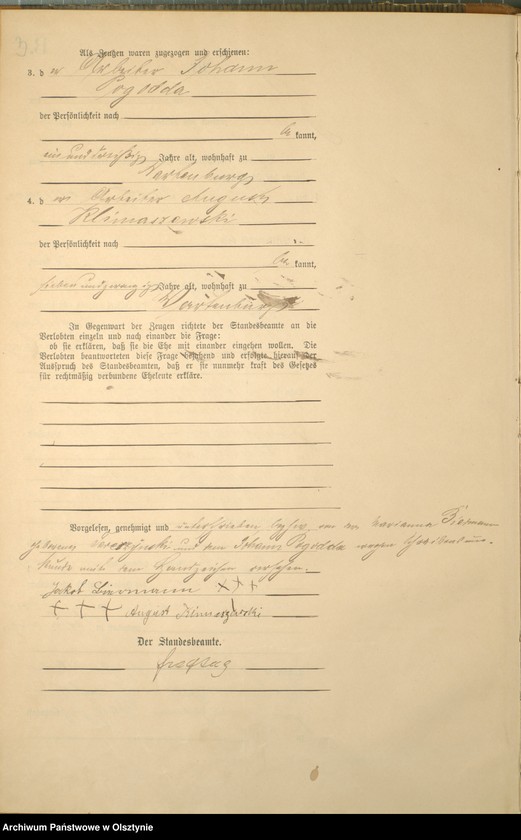 Als Zeugen waren zugezogen und erschienen:
3. d er Arbeiter Johann
Pogodda
der Persönlichkeit nach
be kannt,
ein und dreißig Jahre alt, wohnhaft zu
Wartenburg
4. d er Arbeiter August
Klimaszewski
der Persönlichkeit nach
be kannt,
sieben und zwanzig Jahre alt, wohnhaft zu
Wartenburg
In Gegenwart der Zeugen richtete der Standesbeamte an die
Verlobten einzeln und nach einander die Frage:
ob sie erklären, daß sie die Ehe mit einander eingehen wollen. Die
Verlobten beantworteten diese Frage bejahend und erfolgte hierauf der
Ausspruch des Standesbeamten, daß er sie nunmehr kraft des Gesetzes
für rechtmäßig verbundene Eheleute erkläre.
Vorgelesen, genehmigt und unterschrieben bezw. von der Marianna
geborenen und dem Johann Pogodda wegen Schreibensun-
kunde mit dem Handzeichen versehen.
Jakob Biermann +++
+++ August Klimaszewski
Der Standesbeamte.
Archiwum Państwowe w Olsztynie